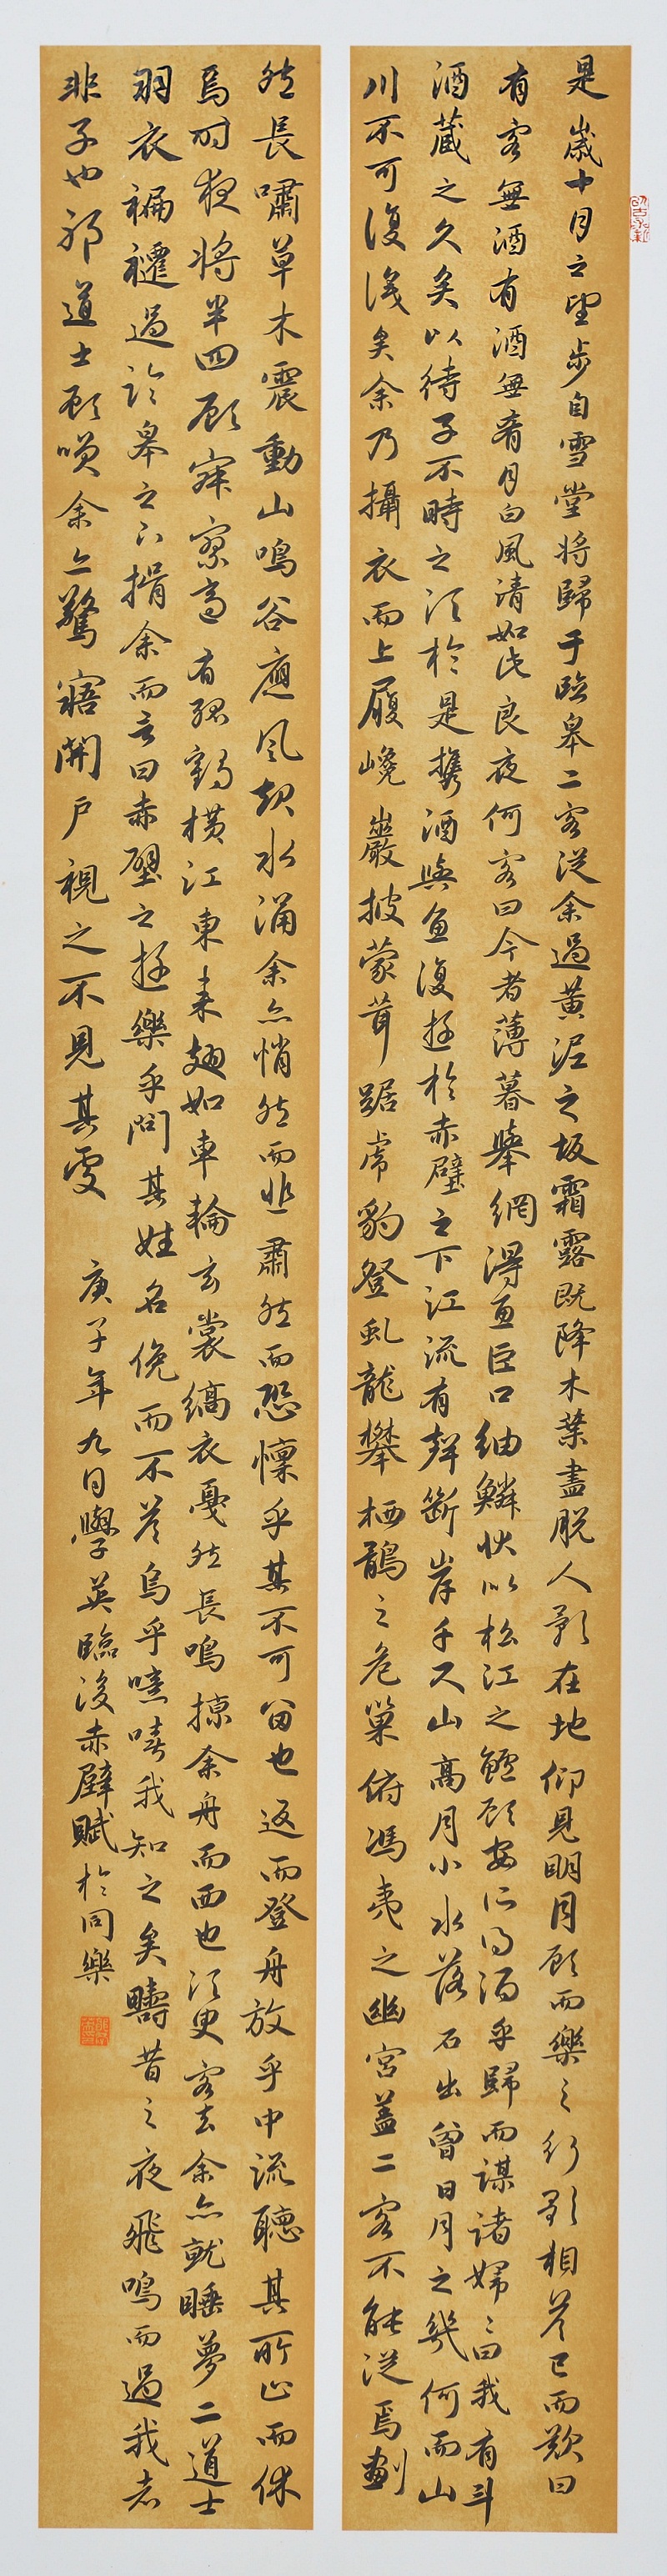 是歲十月之望步自雪堂將歸于臨皋二客從余過黃泥之坂霜露既降木葉盡脫人影在地仰見明月顧而樂之行歌相答已而歎曰
有客無酒有酒無肴月白風清如此良夜何客曰今者薄暮舉網得魚巨口細鱗狀似松江之鱸顧安所得酒乎歸而謀諸婦〻曰我有斗
酒藏之久矣以待子不時之須於是攜酒與魚復遊於赤壁之下江流有聲斷岸千尺山高月小水落石出曾日月之幾何而山
川不可復識矣余乃攝衣而上履巉巖披蒙茸踞虎豹登虬龍攀栖鶻之危巢俯馮夷之幽宮蓋二客不能從焉劃
然長嘯草木震動山鳴谷應風起水涌余亦悄然而悲肅然而恐懍乎其不可留也返而登舟放乎中流聽其所止而休
焉時夜將半四顧寂寥適有孤鶴橫江東來翅如車輪玄裳縞衣戛然長鳴掠余舟而西也須臾客去余亦就睡夢二道士
羽衣褊褼過臨皋之下揖余而言曰赤壁之遊樂乎問其姓名俛而不答烏乎噫嘻我知之矣疇昔之夜飛鳴而過我者
非子也耶道士顧笑余亦驚寤開戶視之不見其處 庚子年九月學英臨後赤壁賦於同樂